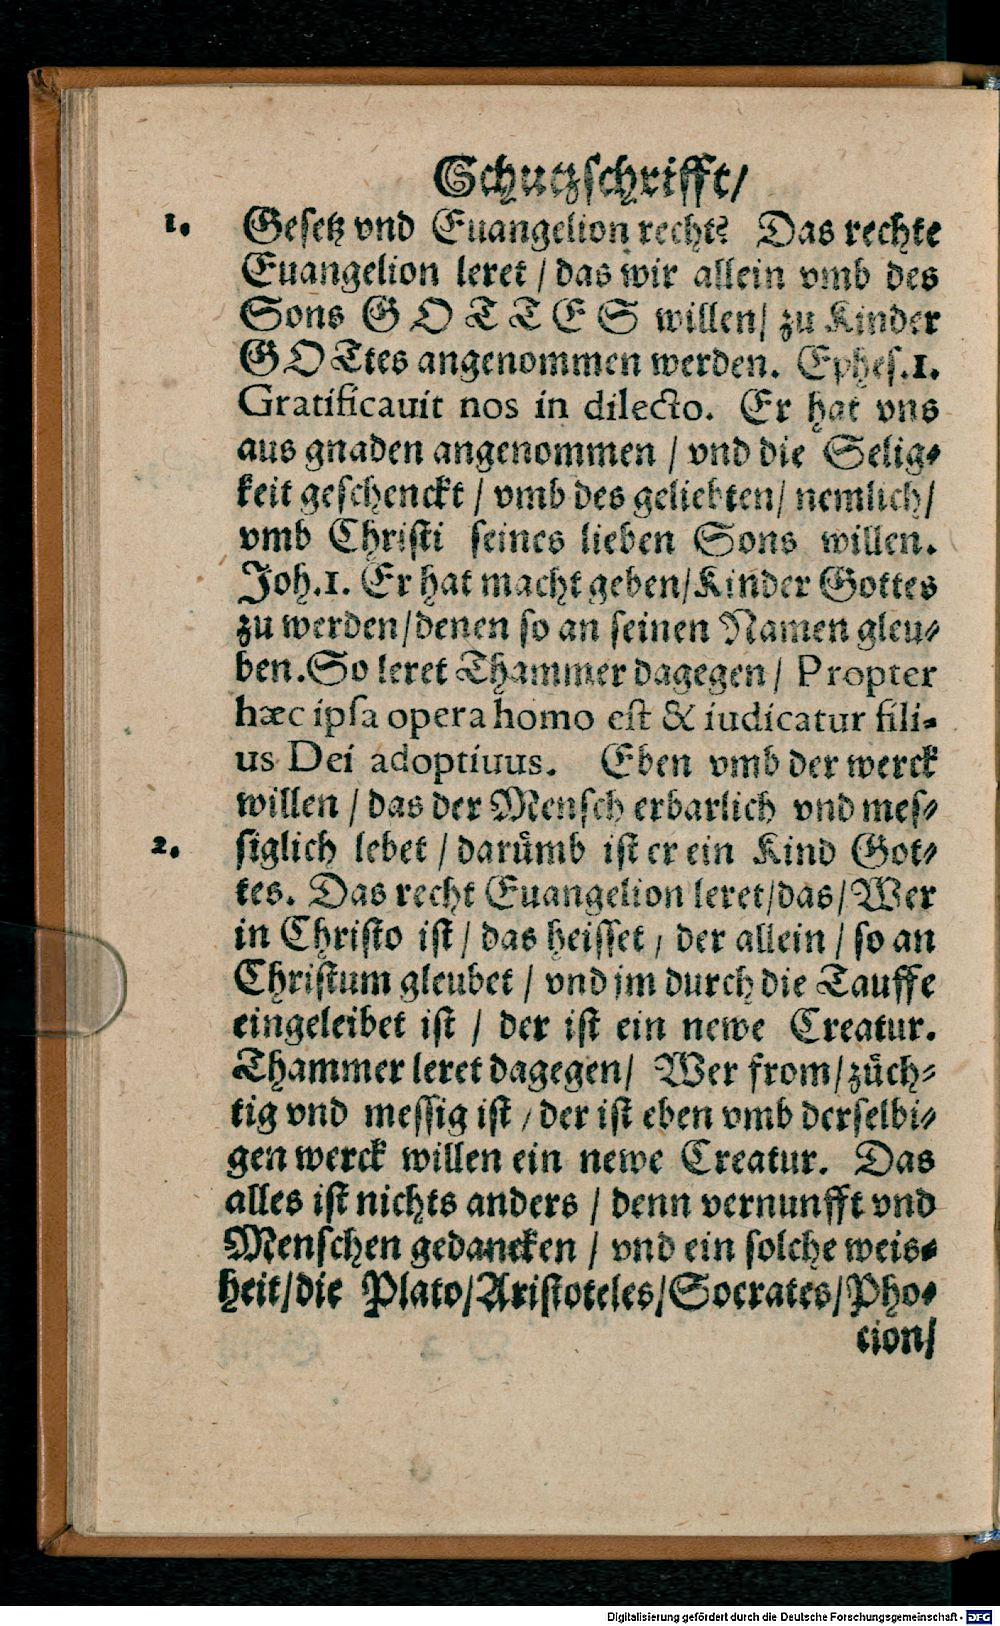 Schutzschrifft/
1. Gesetz vnd Euangelion recht? Das rechte
Euangelion leret / das wir allein vmb des
Sons GOTTES willen/ zu Kinder
GOTtes angenommen werden. Ephes.1.
Gratificauit nos in dilecto. Er hat vns
aus gnaden angenommen / vnd die Selig-
keit geschenckt / vmb des geliebten/ nemlich/
vmb Christi seines lieben Sons willen.
Joh.1. Er hat macht geben/Kinder Gottes
zu werden/denen so an seinen Namen gleu-
ben.So leret Thammer dagegen / Propter
hæc ipsa opera homo est & iudicatur fili-
us Dei adoptiuus. Eben vmb der werck
willen / das der Mensch erbarlich vnd mes-
2. siglich lebet / daruͤmb ist er ein Kind Got-
tes. Das recht Euangelion leret/das/Wer
in Christo ist/ das heisset, der allein / so an
Christum gleubet / vnd jm durch die Tauffe
eingeleibet ist / der ist ein newe Creatur.
Thammer leret dagegen/ Wer from/zuͤch-
tig vnd messig ist / der ist eben vmb derselbi-
gen werck willen ein newe Creatur. Das
alles ist nichts anders / denn vernunfft vnd
Menschen gedancken / vnd ein solche weis-
heit/die Plato/Aristoteles/Socrates/Pho-
cion/
Digitalisierung gefördert durch die Deutsche Forschungsgemeinschaft - DFG